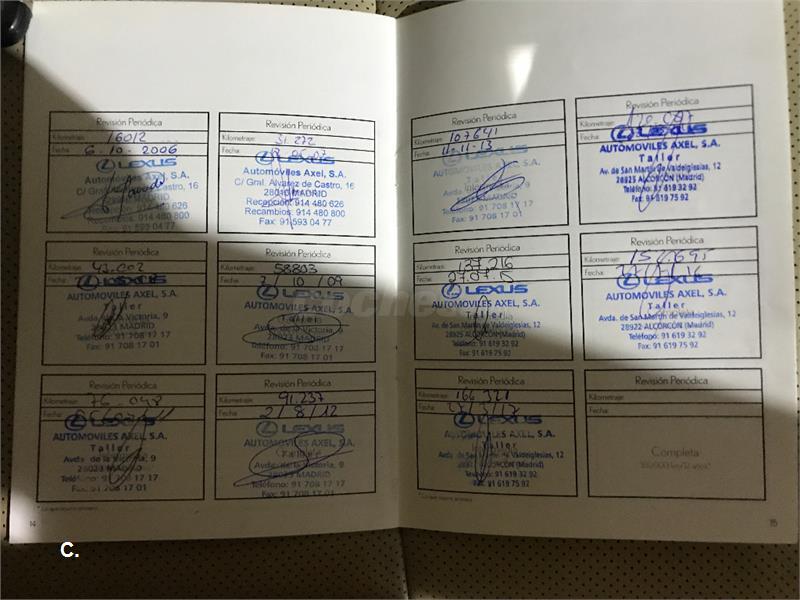 Revisión Periódica
Kilometraje: 16012
Fecha: 6-10-2006
LEXUS
Automóviles Axel, S.A.
C/ Gml. Alvarez de Castro, 16
28010 MADRID
Recepción: 914 480 626
Recambios: 914 480 800
Fax: 91 593 04 77
Revisión Periódica
Kilometraje: 31.272
Fecha:
LEXUS
Automóviles Axel, S.A.
C/ Gml. Alvarez de Castro, 16
28010 MADRID
Recepción: 914 480 626
Recambios: 914 480 800
Fax: 91 593 04 77
Revisión Periódica
Kilometraje: 43.002
Fecha:
LEXUS
AUTOMOVILES AXEL, S.A.
Taller
Avda. de la Victoria, 9
28023 MADRID
Teléfono: 91 708 17 17
Fax: 91 708 17 01
Revisión Periódica
Kilometraje: 58803
Fecha: 2/10/09
LEXUS
AUTOMOVILES AXEL, S.A.
Taller
Avda. de la Victoria, 9
28023 MADRID
Teléfono: 91 708 17 17
Fax: 91 708 17 01
Revisión Periódica
Kilometraje: 76.048
Fecha:
LEXUS
AUTOMOVILES AXEL, S.A.
Taller
Avda. de la Victoria, 9
28023 MADRID
Teléfono: 91 708 17 17
Fax: 91 708 17 01
Revisión Periódica
Kilometraje: 91.237
Fecha: 2/8/12
LEXUS
AUTOMOVILES AXEL, S.A.
Taller
Avda. de la Victoria, 9
28023 MADRID
Teléfono: 91 708 17 17
Fax: 91 708 17 01
14
Revisión Periódica
Kilometraje: 107641
Fecha: 11-13
LEXUS
AUTOMOVILES AXEL, S.A.
Taller
Avda. de la Victoria, 9
28023 MADRID
Teléfono: 91 708 17 17
Fax: 91 708 17 01
Revisión Periódica
Kilometraje:
Fecha:
LEXUS
Taller
Av. de San Martín de Valdeiglesias, 12
28925 ALCORCÓN (Madrid)
Teléfono: 91 619 32 92
Fax: 91 619 75 92
Revisión Periódica
Kilometraje: 137.216
Fecha:
LEXUS
AUTOMOVILES AXEL, S.A.
Taller
Av. de San Martín de Valdeiglesias, 12
28925 ALCORCÓN (Madrid)
Teléfono: 91 619 32 92
Fax: 91 619 75 92
Revisión Periódica
Kilometraje: 152.695
Fecha:
LEXUS
AUTOMOVILES AXEL, S.A.
Taller
Avda. de San Martín de Valdeiglesias, 12
28922 ALCORCÓN (Madrid)
Teléfono: 91 619 32 92
Fax: 91 619 75 92
Revisión Periódica
Kilometraje: 166.321
Fecha:
LEXUS
AUTOMOVILES AXEL, S.A.
Taller
Av. de San Martín de Valdeiglesias, 12
28925 ALCORCÓN (Madrid)
Teléfono: 91 619 32 92
Fax: 91 619 75 92
Revisión Periódica
Kilometraje:
Fecha:
Completa
15
C.